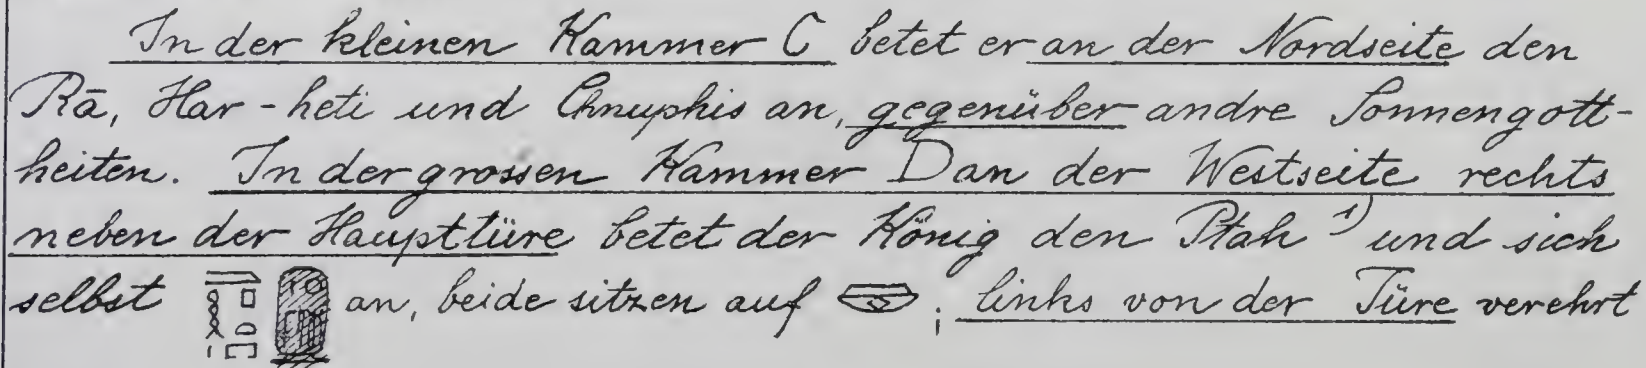 In der kleinen Kammer C betet er an der Nordseite den
Rā, Har-heti und Chnuphis an, gegenüber andre Sonnengott-
heiten. In der grossen Kammer D an der Westseite rechts
neben der Haupttüre betet der König den Ptah 1) und sich
selbst an, beide sitzen auf ; links von der Türe verehrt